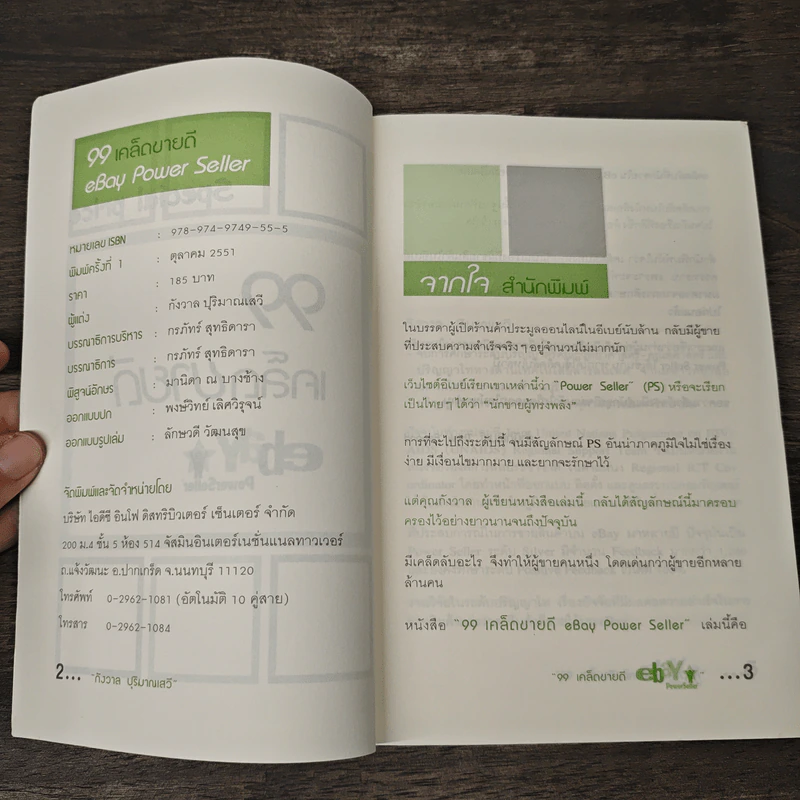 99 เคล็ดขายดี
eBay Power Seller
หมายเลข ISBN : 978-974-9749-55-5
พิมพ์ครั้งที่ 1 : ตุลาคม 2551
ราคา : 185 บาท
ผู้แต่ง : กังวาล ปุริมาณเสวี
บรรณาธิการบริหาร : กรภัทร์ สุทธิดารา
บรรณาธิการ : กรภัทร์ สุทธิดารา
พิสูจน์อักษร : มานิดา ณ บางช้าง
ออกแบบปก : พงษ์วิทย์ เลิศวิรุจน์
ออกแบบรูปเล่ม : ลักษวดี วัฒนสุข
จัดพิมพ์และจัดจำหน่ายโดย
บริษัท ไอดีซี อินโฟ ดิสทริบิวเตอร์ เซ็นเตอร์ จำกัด
200 ม.4 ชั้น 5 ห้อง 514 จัสมินอินเตอร์เนชั่นแนลทาวเวอร์
ถ.แจ้งวัฒนะ อ.ปากเกร็ด จ.นนทบุรี 11120
โทรศัพท์ 0-2962-1081 (อัตโนมัติ 10 คู่สาย)
โทรสาร 0-2962-1084
2... "กังวาล ปุริมาณเสวี"
จากใจ สำนักพิมพ์
ในบรรดาผู้เปิดร้านค้าประมูลออนไลน์ในอีเบย์นับล้าน กลับมีผู้ขาย
ที่ประสบความสำเร็จจริง ๆ อยู่จำนวนไม่มากนัก
เว็บไซต์อีเบย์เรียกเขาเหล่านี้ว่า "Power Seller" (PS) หรือจะเรียก
เป็นไทย ๆ ได้ว่า "นักขายผู้ทรงพลัง"
การที่จะไปถึงระดับนี้ จนมีสัญลักษณ์ PS อันน่าภาคภูมิใจไม่ใช่เรื่อง
ง่าย มีเงื่อนไขมากมาย และยากจะรักษาไว้
แต่คุณกังวาล ผู้เขียนหนังสือเล่มนี้ กลับได้สัญลักษณ์นี้มาครอบ
ครองไว้อย่างยาวนานจนถึงปัจจุบัน
มีเคล็ดลับอะไร จึงทำให้ผู้ขายคนหนึ่ง โดดเด่นกว่าผู้ขายอีกหลาย
ล้านคน
หนังสือ "99 เคล็ดขายดี eBay Power Seller" เล่มนี้คือ
"99 เคล็ดขายดี ebay PowerSeller" ...3